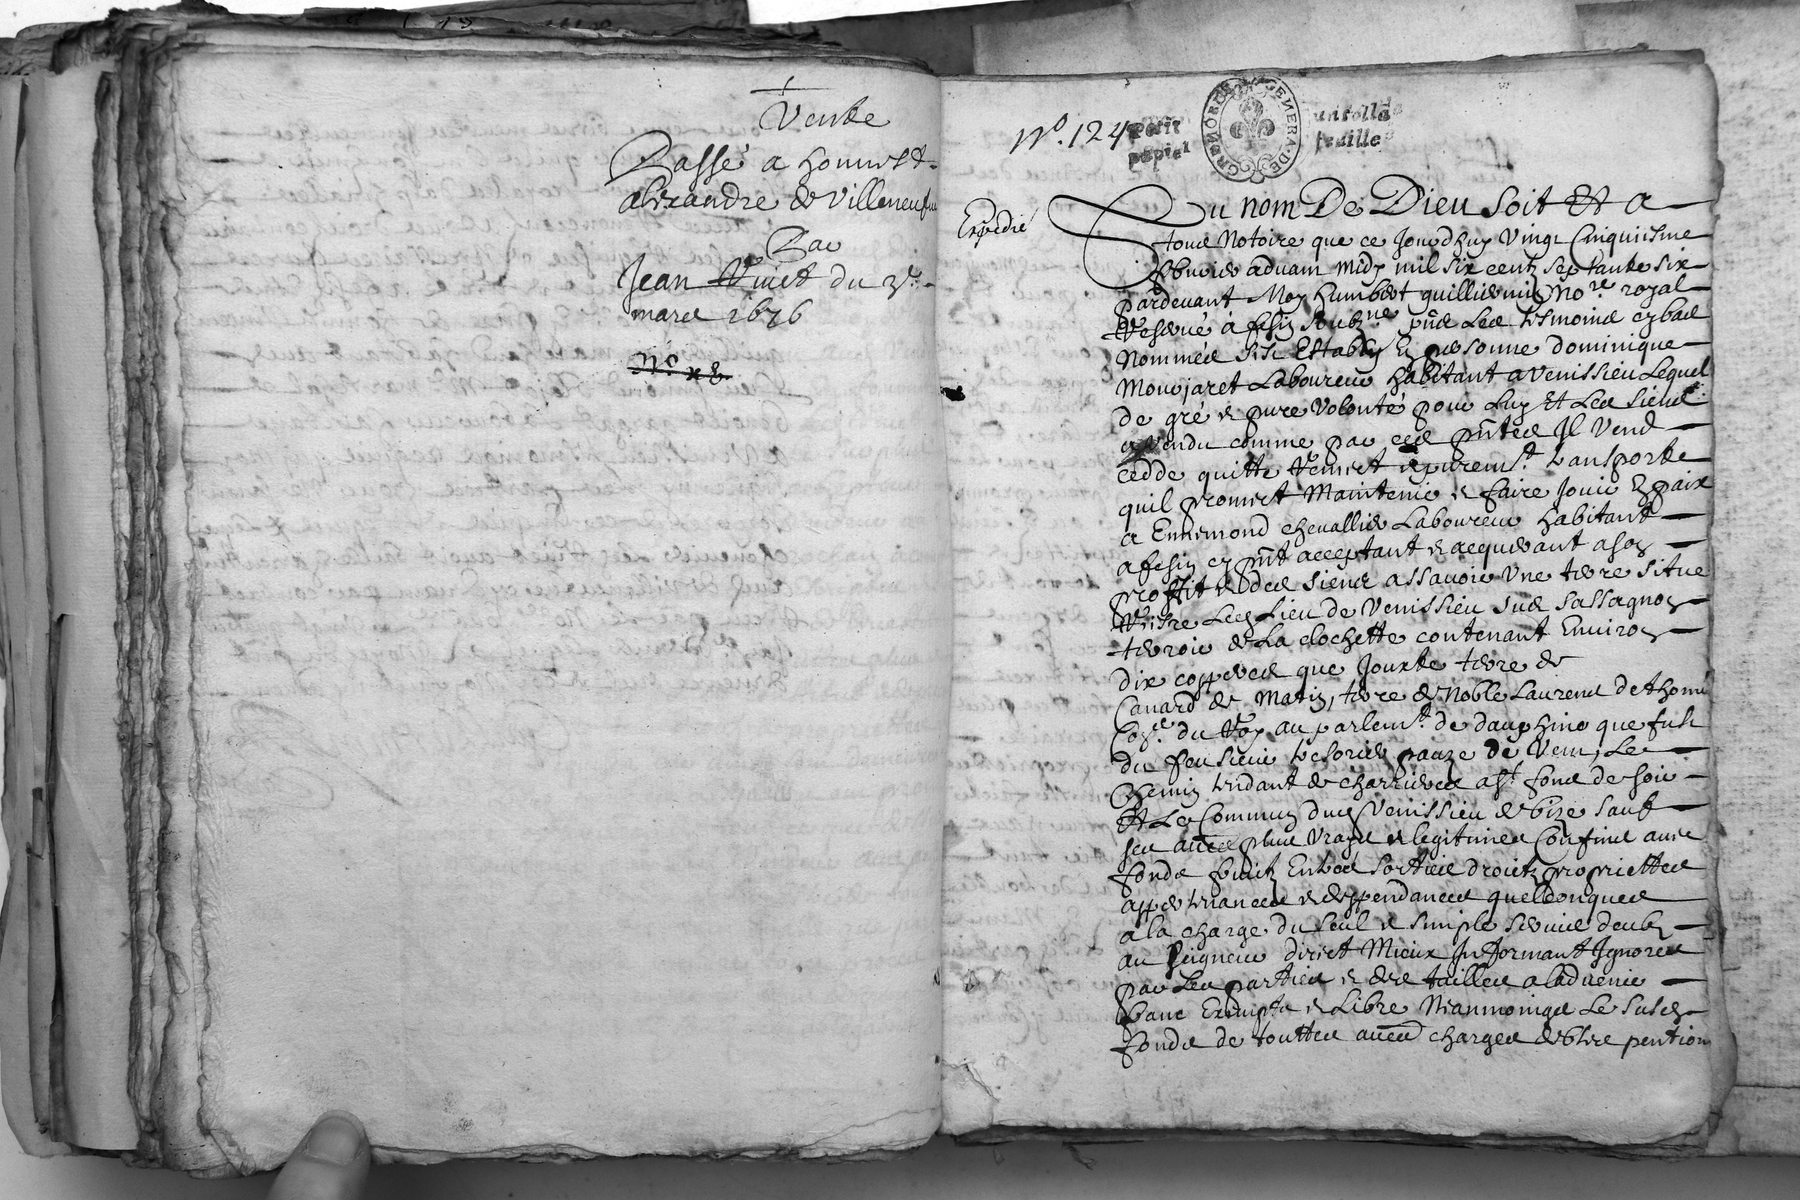 Vente
Passé a honnest
alexandre de Villeneufve
Par
Jean Vinet du 3e
mars 1676
No. 124
petit
papier
GRENOBLE GENERA. DE
un sol la
feuille
Expedié
Au nom De Dieu soit Et a
tous Notoire que ce Jourdhuy Vingt Cinquiesme
febvrier advant midy mil six centz septante six
pardevant Moy humbert quilliermin No.re royal
reservé à fesin soubz.ne pnt Les tesmoins cy bas
Nommés fust Estably En personne dominique
Monojaret Laboureur habitant a Venissieu Lequel
de gré et pure Volonté pour Luy Et Les siens
a vendu comme par ces pntes Il Vend
cedde quitte remet et purem.t transporte
quil promet Maintenir et faire Jouir En paix
a Ennemond chevallier Laboureur habitant
a fesin cy pnt acceptant et acquerant a son
proffit et des siens assavoir Une terre situe
Lieu de Venissieu sus sassagnon
terroir de La clochette contenant Environ
Dix copperes que Jouxte terre de
Canard de Matin, terre de Noble Laurens dethomé
Con.er du Roy au parlem.t de dauphine que fust
du feu sieur tresorier pauze de Vent, Le
Chemin tendant de charrieres a st fons de soir
Et Le Commun dud Venissieu de bize sauf
ses aues plus Vrays et legitimes Confins avec
fonds fruitz Entrees sorties droietz proprietted
appertenances et deppendances quelconques
a la charge du seul et simple servis deub
au seigneur direct Mieux Informant Ignorer
par Les parties et des tailles a ladvenir
franc Exempt et Libre Neanmoings Le susd
fonds de touttes aues charges debtes pention